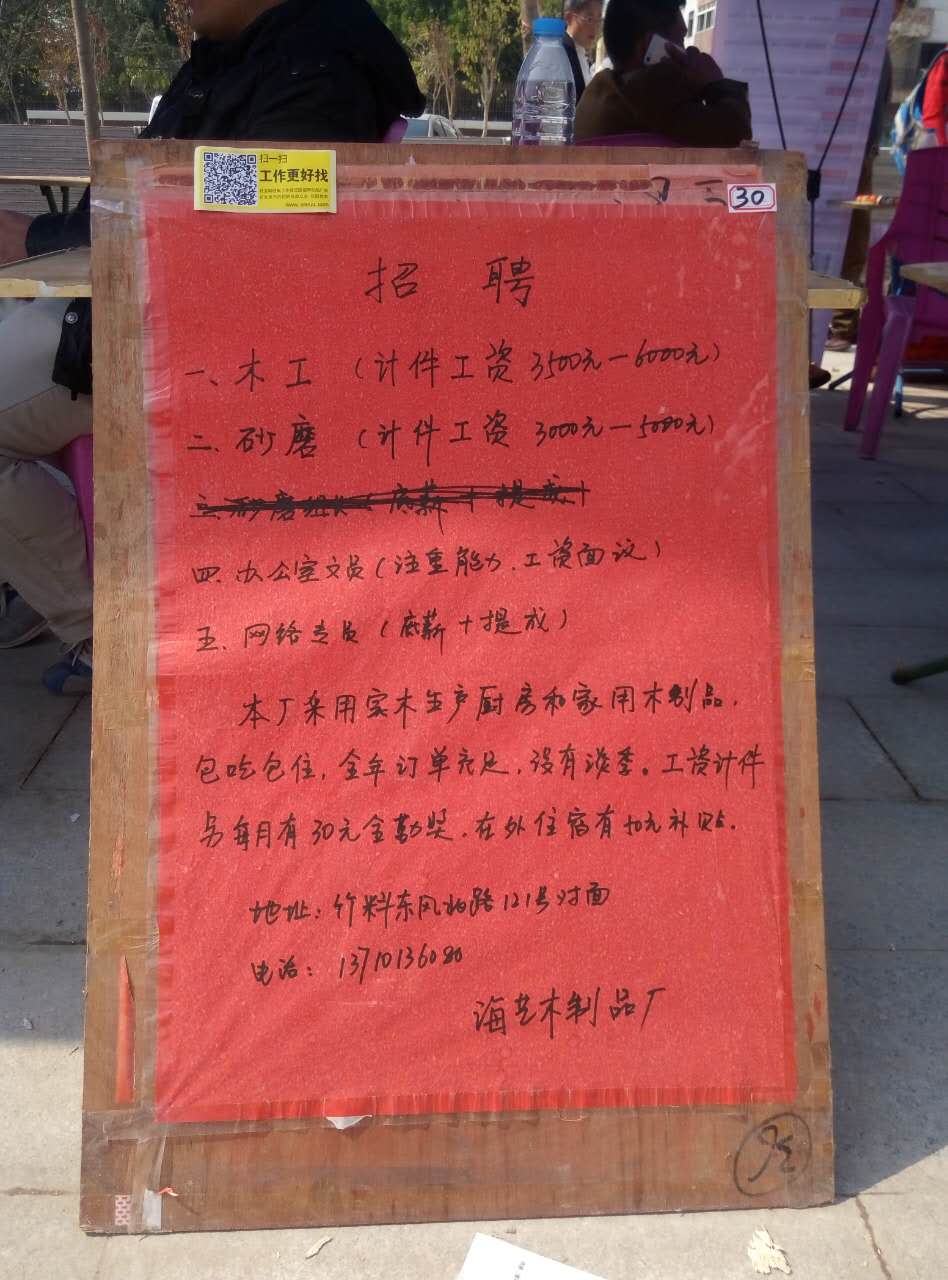 扫一扫
工作更好找
30
招 聘
一、木工（计件工资 3500元—6000元）
二、砂磨（计件工资 3000元—5000元）
三、砂磨组长（底薪+提成）
四、办公室文员（注重能力、工资面议）
五、网络专员（底薪+提成）
本厂采用实木生产厨房和家用木制品，
包吃包住，全年订单充足，没有淡季。工资计件
另每月有30元全勤奖，在外住宿有50元补贴。
地址：竹料东风柏路121号对面
电话：13710136080
海艺木制品厂